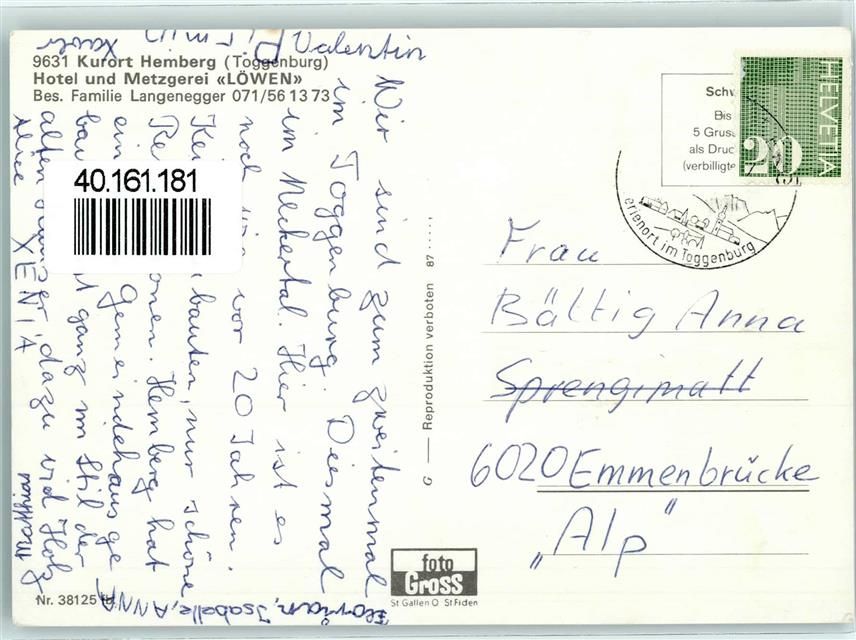 9631 Kurort Hemberg (Toggenburg)
Hotel und Metzgerei «LÖWEN»
Bes. Familie Langenegger 071/56 13 73
Valentin
Xaver
Wir sind zum zweitenmal
im Toggenburg. Diesmal
im Neckertal. Hier ist es
noch wie vor 20 Jahren.
bauten, nur schöne
onen. Hemberg hat
ein Gemeindehaus ge
bau t ganz im Stil der
alten dazu viel Holz
Alice XENIA Matthias
Florian, Isabelle, ANNA
40.161.181
Nr. 38125
G — Reproduktion verboten 87
foto
Gross
St Gallen O St Fiden
Schw
Bis
5 Gruss
als Druc
(verbilligte
HELVETIA
20
erienort im Toggenburg
Frau
Bättig Anna
Sprengimatt
6020 Emmenbrücke
„Alp"